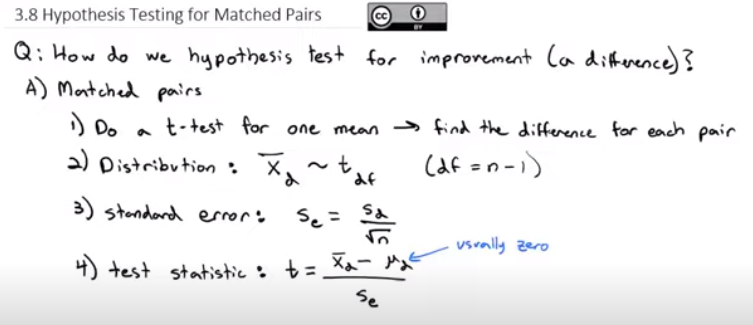 3.8 Hypothesis Testing for Matched Pairs
cc BY
Q: How do we hypothesis test for improvement (a difference)?
A) Matched pairs
1) Do a t-test for one mean → find the difference for each pair
2) Distribution: x̄_d ~ t_df (df = n-1)
3) standard error: s_e = s_d / √n
4) test statistic: t = (x̄_d - μ_d) / s_e
usually zero